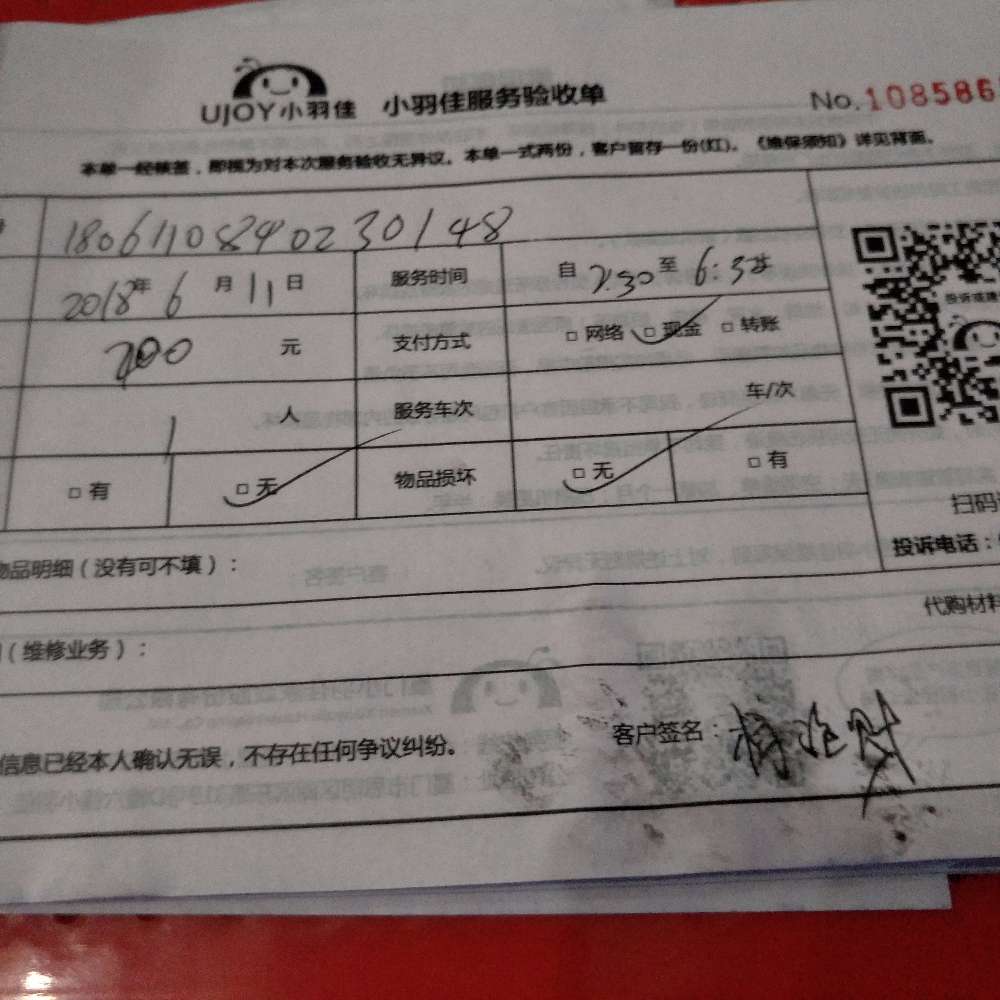 UJOY小羽佳 小羽佳服务验收单 No.108586
本单一经核签，即视为对本次服务验收无异议。本单一式两份，客户留存一份(红)。《维保须知》详见背面。
1806110840230148
2018年6月11日 服务时间 自2:30至6:3
200元 支付方式 □ 网络 □ 现金 □ 转账
1人 服务车次 车/次
□ 有 □ 无 物品损坏 □ 无 □ 有
投诉或建
扫码
投诉电话：
物品明细（没有可不填）：
代购材料
（维修业务）：
信息已经本人确认无误，不存在任何争议纠纷。 客户签名：